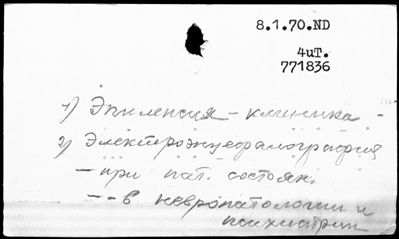 8.1.70.ND
4UT.
771836
1) Эпилепсия – клиника
2) Электроэнцефалография
– при пат. состоян.
– – в невропатологии и
психиатрии